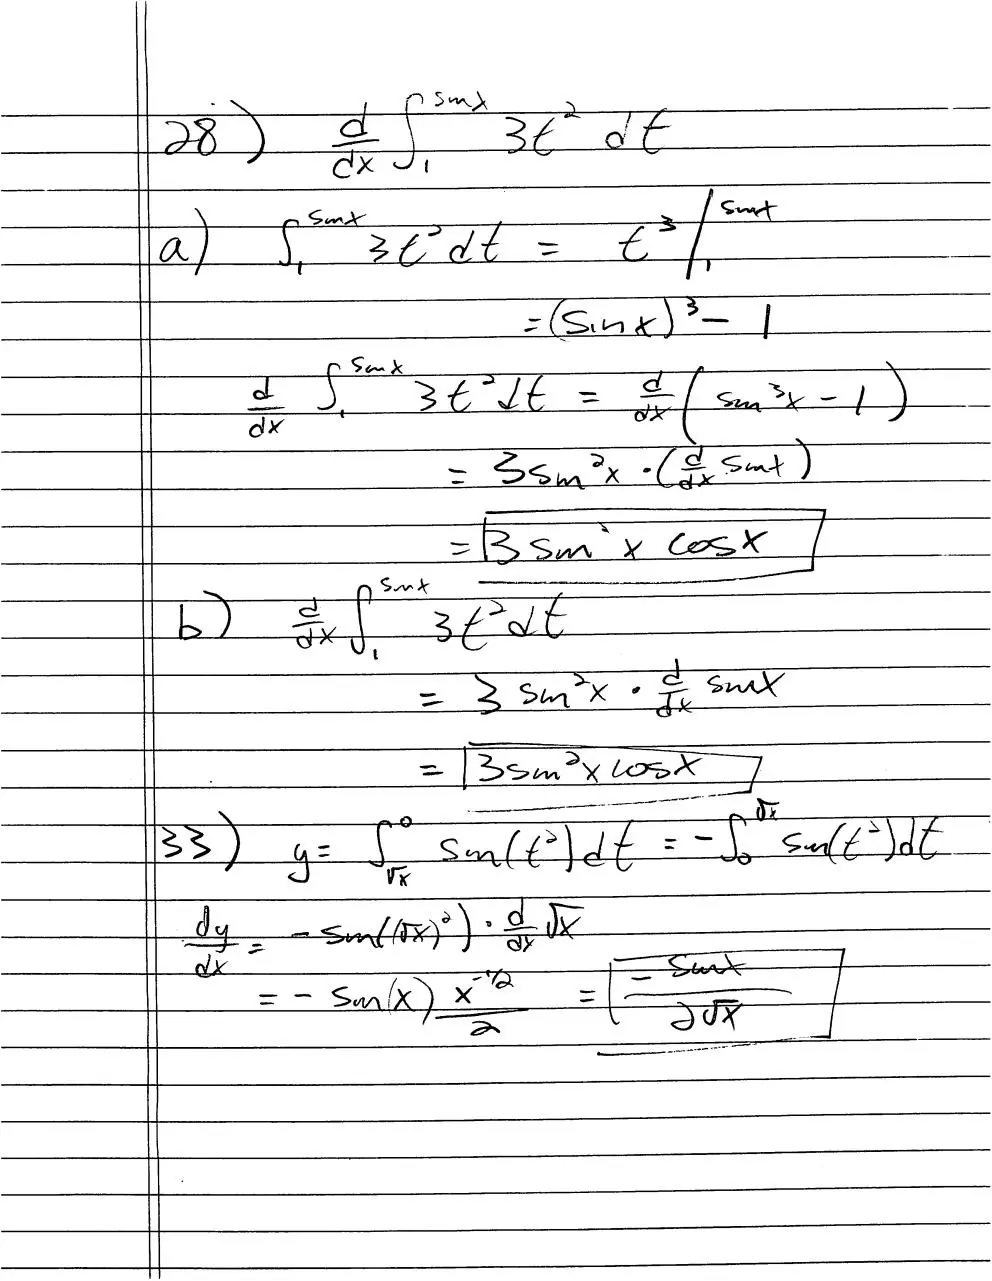 28) d/dx ∫₁^(sin x) 3t² dt
a) ∫₁^(sin x) 3t² dt = t³ |₁^(sin x)
= (sin x)³ - 1
d/dx ∫₁^(sin x) 3t² dt = d/dx (sin³x - 1)
= 3 sin²x · (d/dx sin x)
= 3 sin²x cos x
b) d/dx ∫₁^(sin x) 3t² dt
= 3 sin²x · d/dx sin x
= 3 sin²x cos x
33) y = ∫_(√x)^0 sin(t²) dt = -∫₀^(√x) sin(t²) dt
dy/dx = - sin((√x)²) · d/dx √x
= - sin(x) x^(-1/2)/2 = - sin x / 2√x